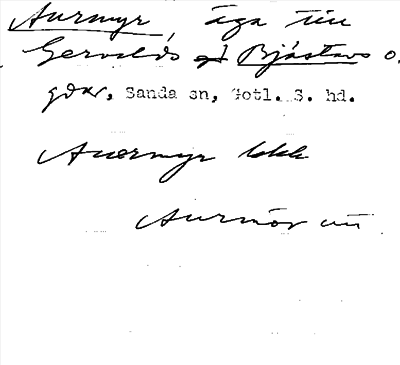 Aurmyr, äga till
Gervalds och Bjästavs o.
gdar, Sanda sn, Gotl. S. hd.
Auermyr lkk
Aurmör uü